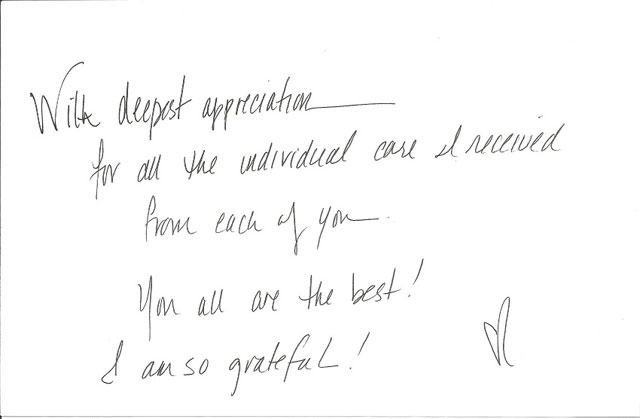 With deepest appreciation
for all the individual care I received
from each of you.
You all are the best!
I am so grateful!